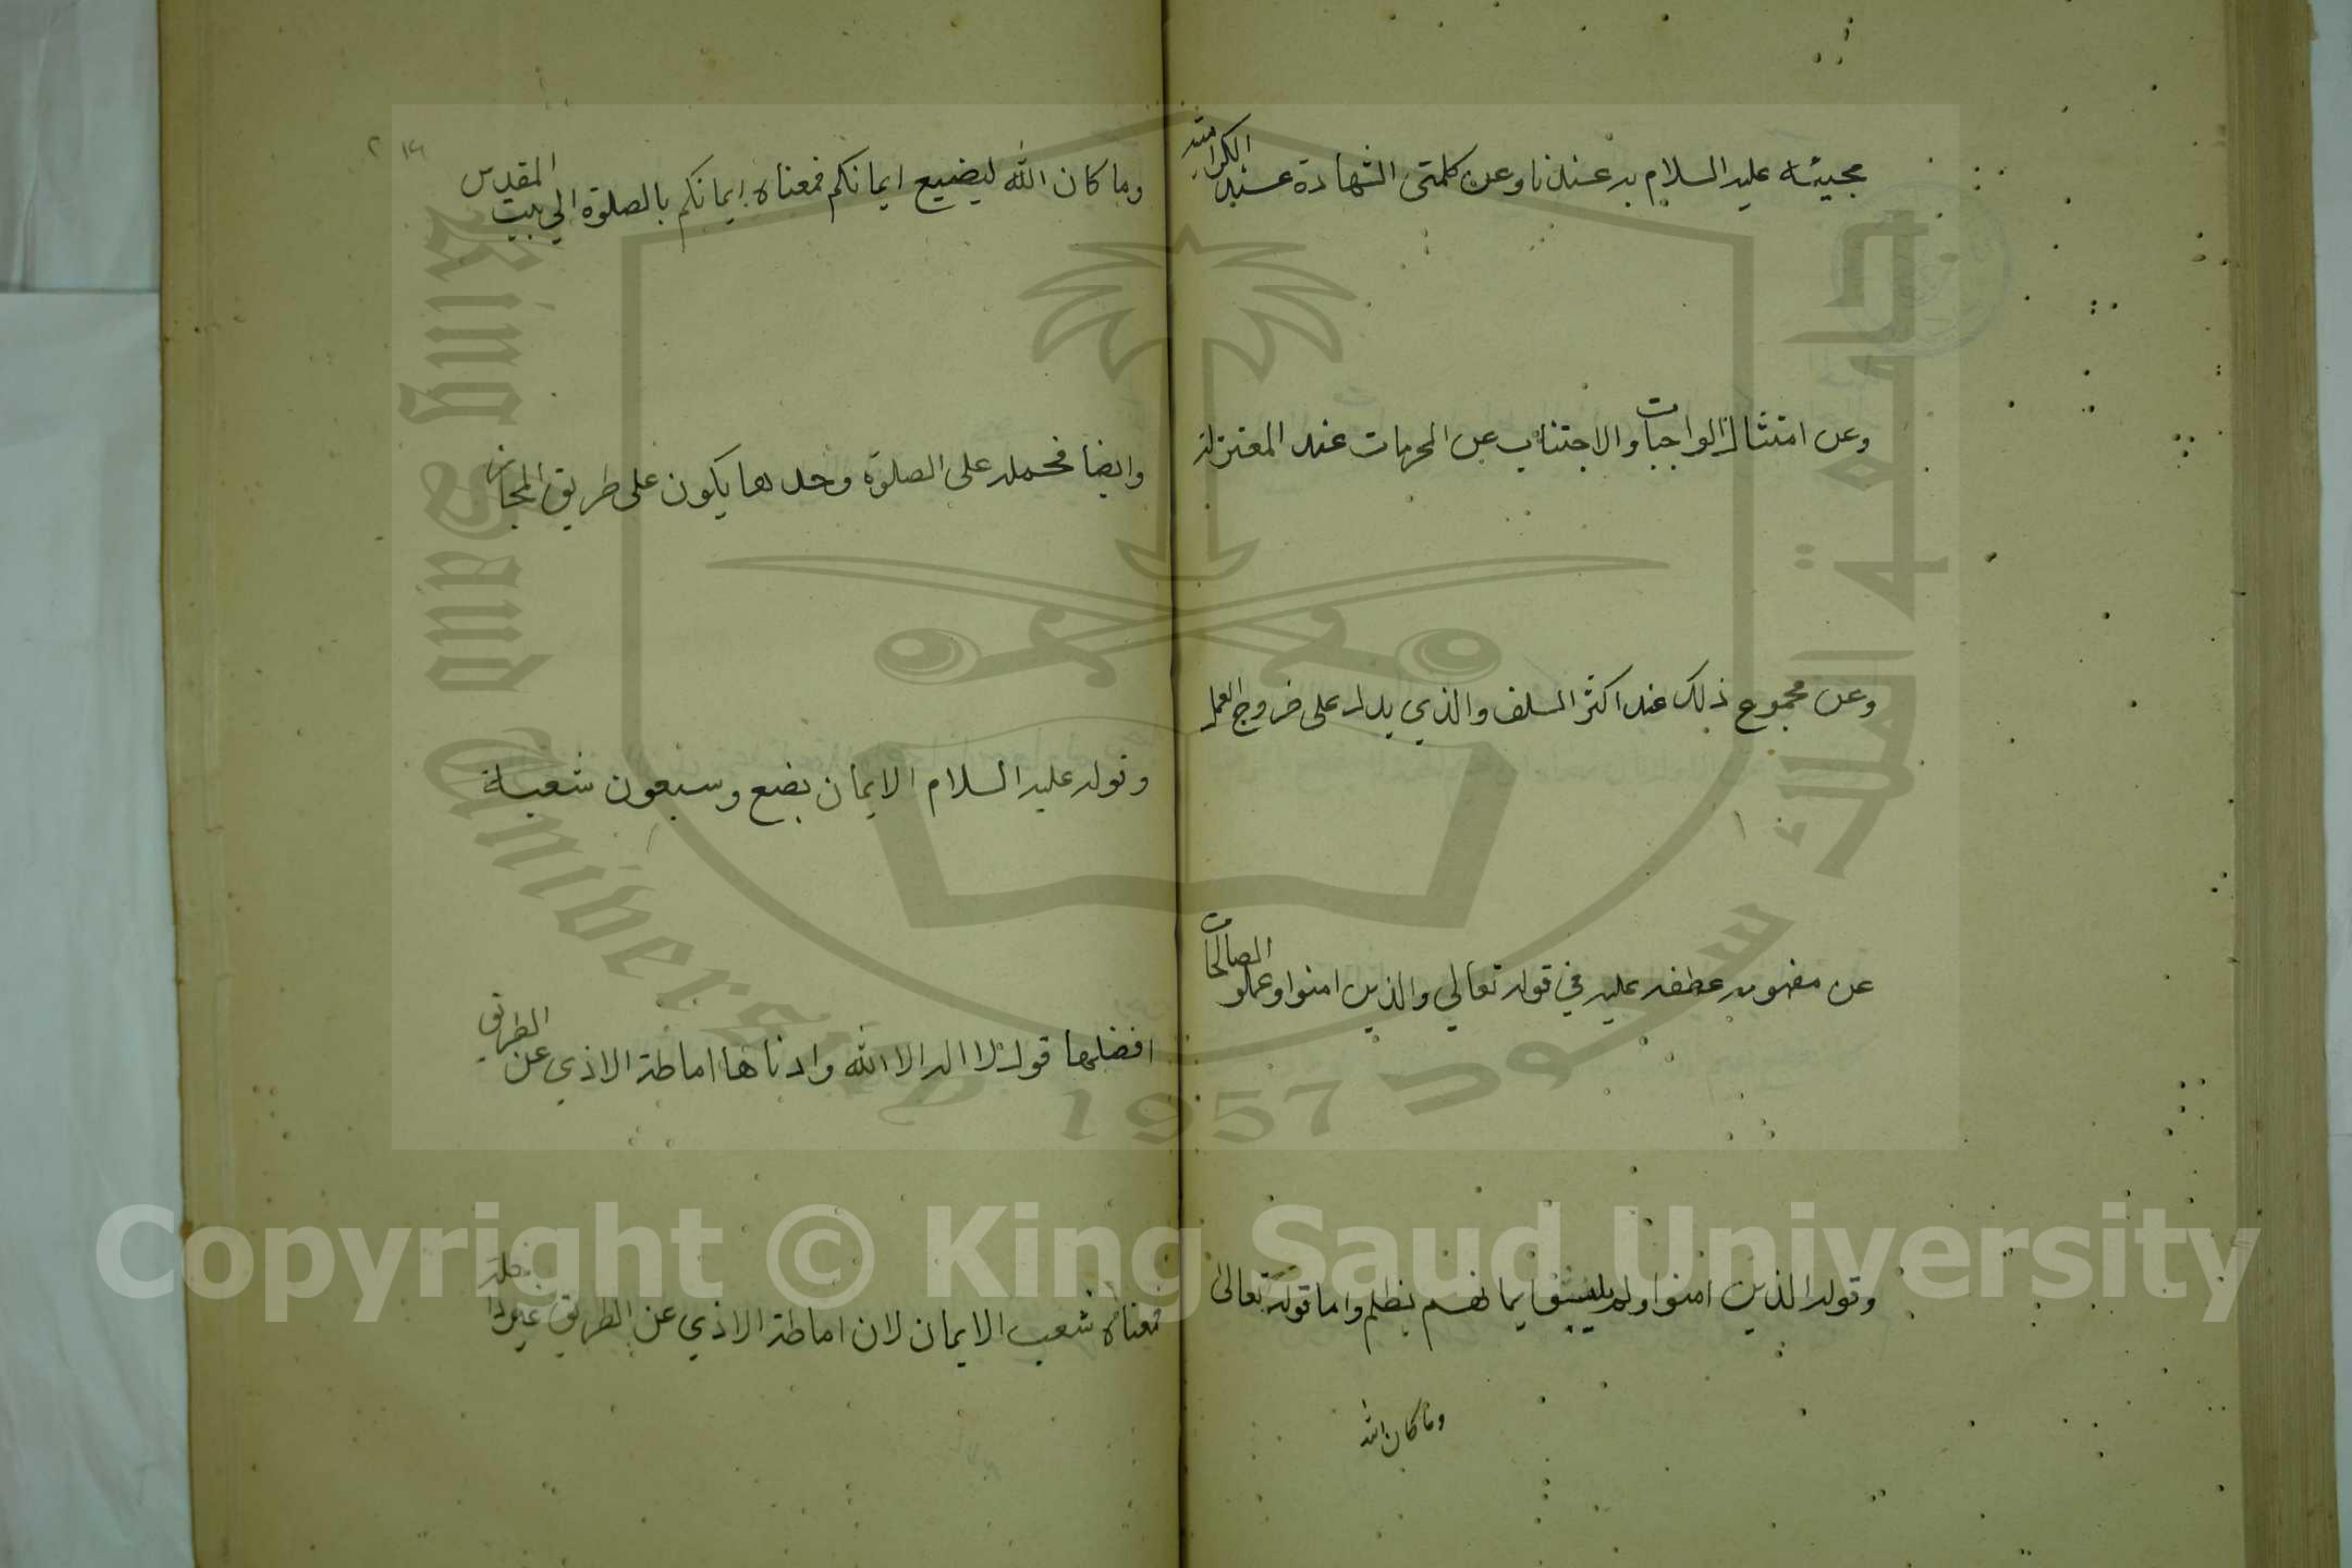 مجيئه عليه السلام به عندنا وعن كلمتي الشهادة عند الكرامية
وعن امتثال الواجبات والاجتناب عن المحرمات عند المعتزلة
وعن مجموع ذلك عند اكثر السلف والذي يدل على خروج العمل
عن مفهومه عطفه عليه في قوله تعالي والذين امنوا وعملو الصالحات
وقوله الذين امنوا ولم يلبسوا ايمانهم بظلم واما قوله تعالى
وما كان الله
وما كان الله ليضيع ايمانكم فمعناه ايمانكم بالصلوة الي بيت المقدس
وايضا فحمله على الصلوة وحدها يكون على طريق المجاز
وقوله عليه السلام الايمان بضع وسبعون شعبة
افضلها قول لا اله الا الله وادناها اماطة الاذي عن الطريق
فمعناه شعب الايمان لان اماطة الاذي عن الطريق غير داخلة
King Saud University
جامعة الملك سعود
1957
Copyright © King Saud University